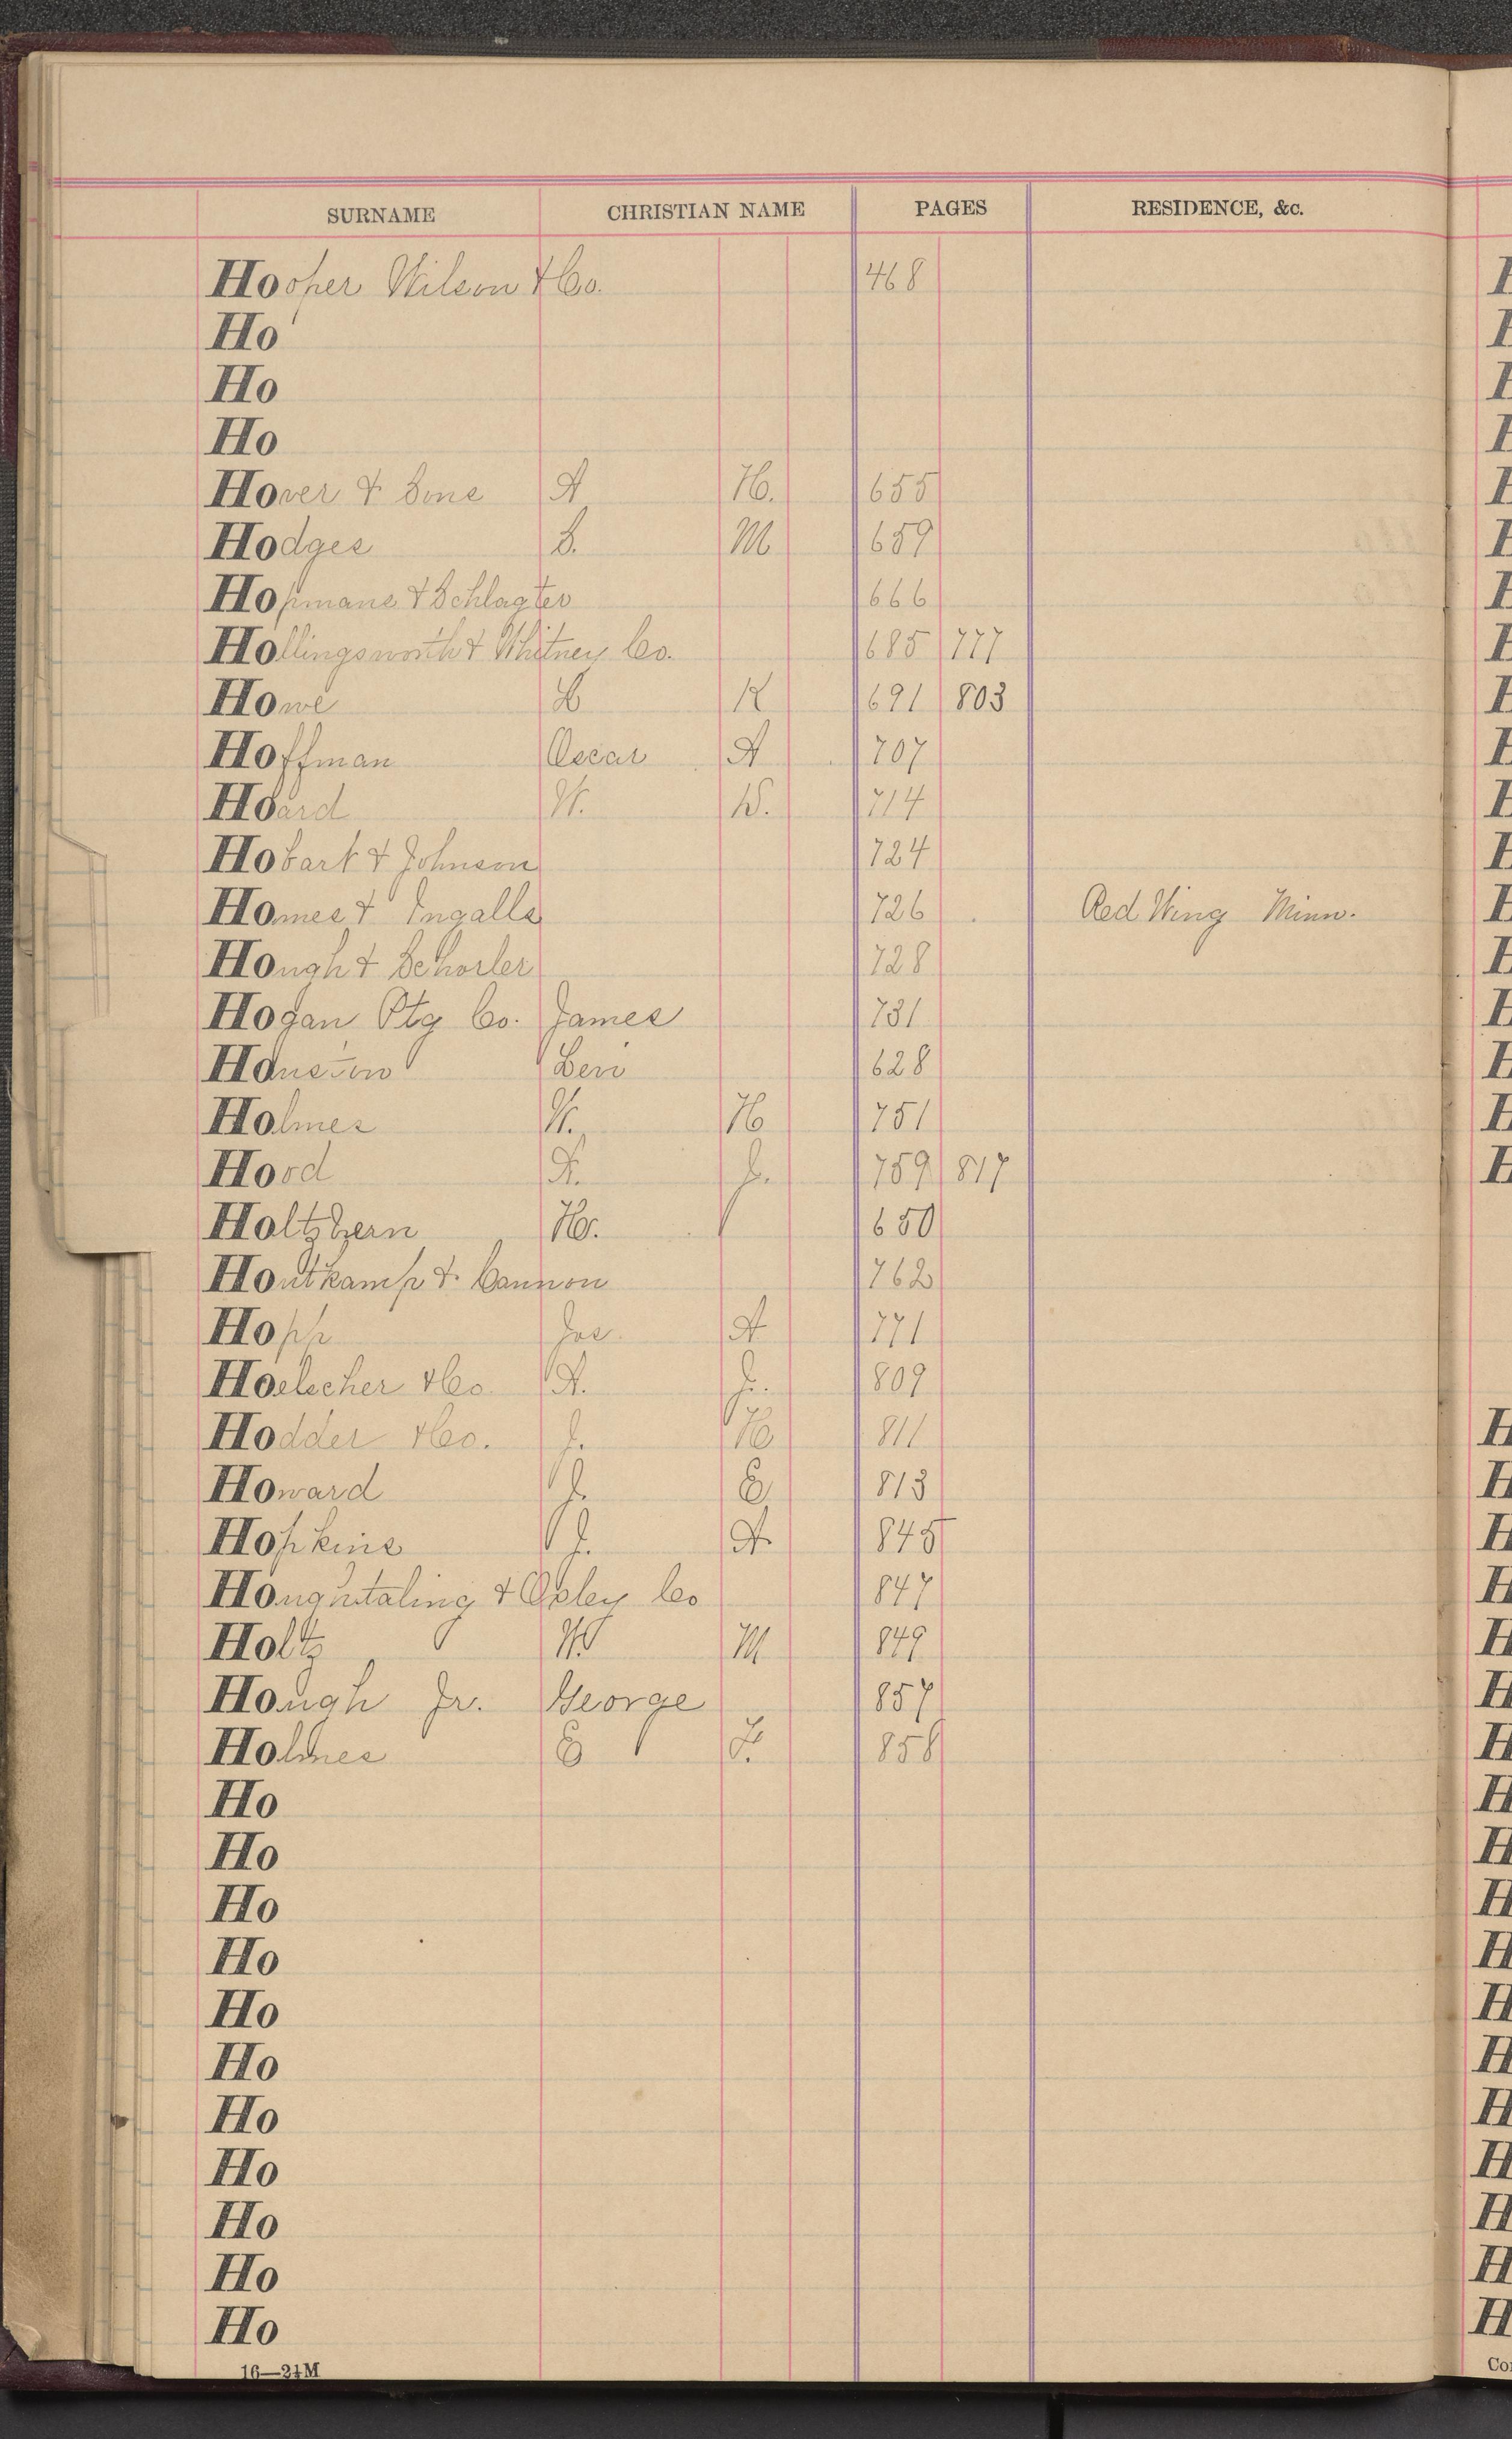 SURNAME CHRISTIAN NAME PAGES RESIDENCE, &c.
Hooper Wilson & Co. 468
Ho
Ho
Ho
Hover & Sons A H. 655
Hodges S. M 659
Hopmans & Schlagter 666
Hollingsworth & Whitney Co. 685 777
Howe K 691 803
Hoffman Oscar A 707
Hoard W. D. 714
Hobart & Johnson 724
Homes & Ingalls 726 Red Wing Minn.
Hough & 728
Hogan Ptg Co. James 731
Houston Ben 628
Holmes W. H 751
Hood 759 817
H. 650
Houtkamp & Cannon 762
Hopp Jos. A 771
Hoelscher & Co. A. J. 809
Hodder & Co. J. H 811
Howard J. E 813
Hopkins J. A. 845
Houghtaling & Co 847
Holtz W M 849
Hough Jr. George 857
Holmes E F. 858
Ho
Ho
Ho
Ho
Ho
Ho
Ho
Ho
Ho
Ho
Ho
16—2½M